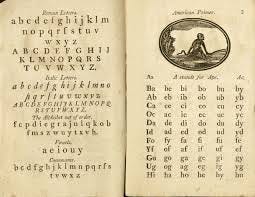 Roman Letters.
a b c d e f g h i j k l m
n o p q r s t u v
w x y z
A B C D E F G H I J
K L M N O P Q R S
T U V W X Y Z.
Italic Letters.
a b c d e f g h i j k l m n o
p q r s t u v w x y z
The Alphabet out of order.
Vowels.
a e i o u y
Consonants.
American Primer.
A stands for Ape.
Ba be bi bo bu by
Ab eb ib ob ub yb
Ca ce ci co cu cy
Da de di do du dy
Id ad ed od ud yd
Fa fe fi fo fu fy
Yf af if ef of uf
Gu go ga ge gi gy
Ug og ag eg ig yg
Hi ha ho he hy hu